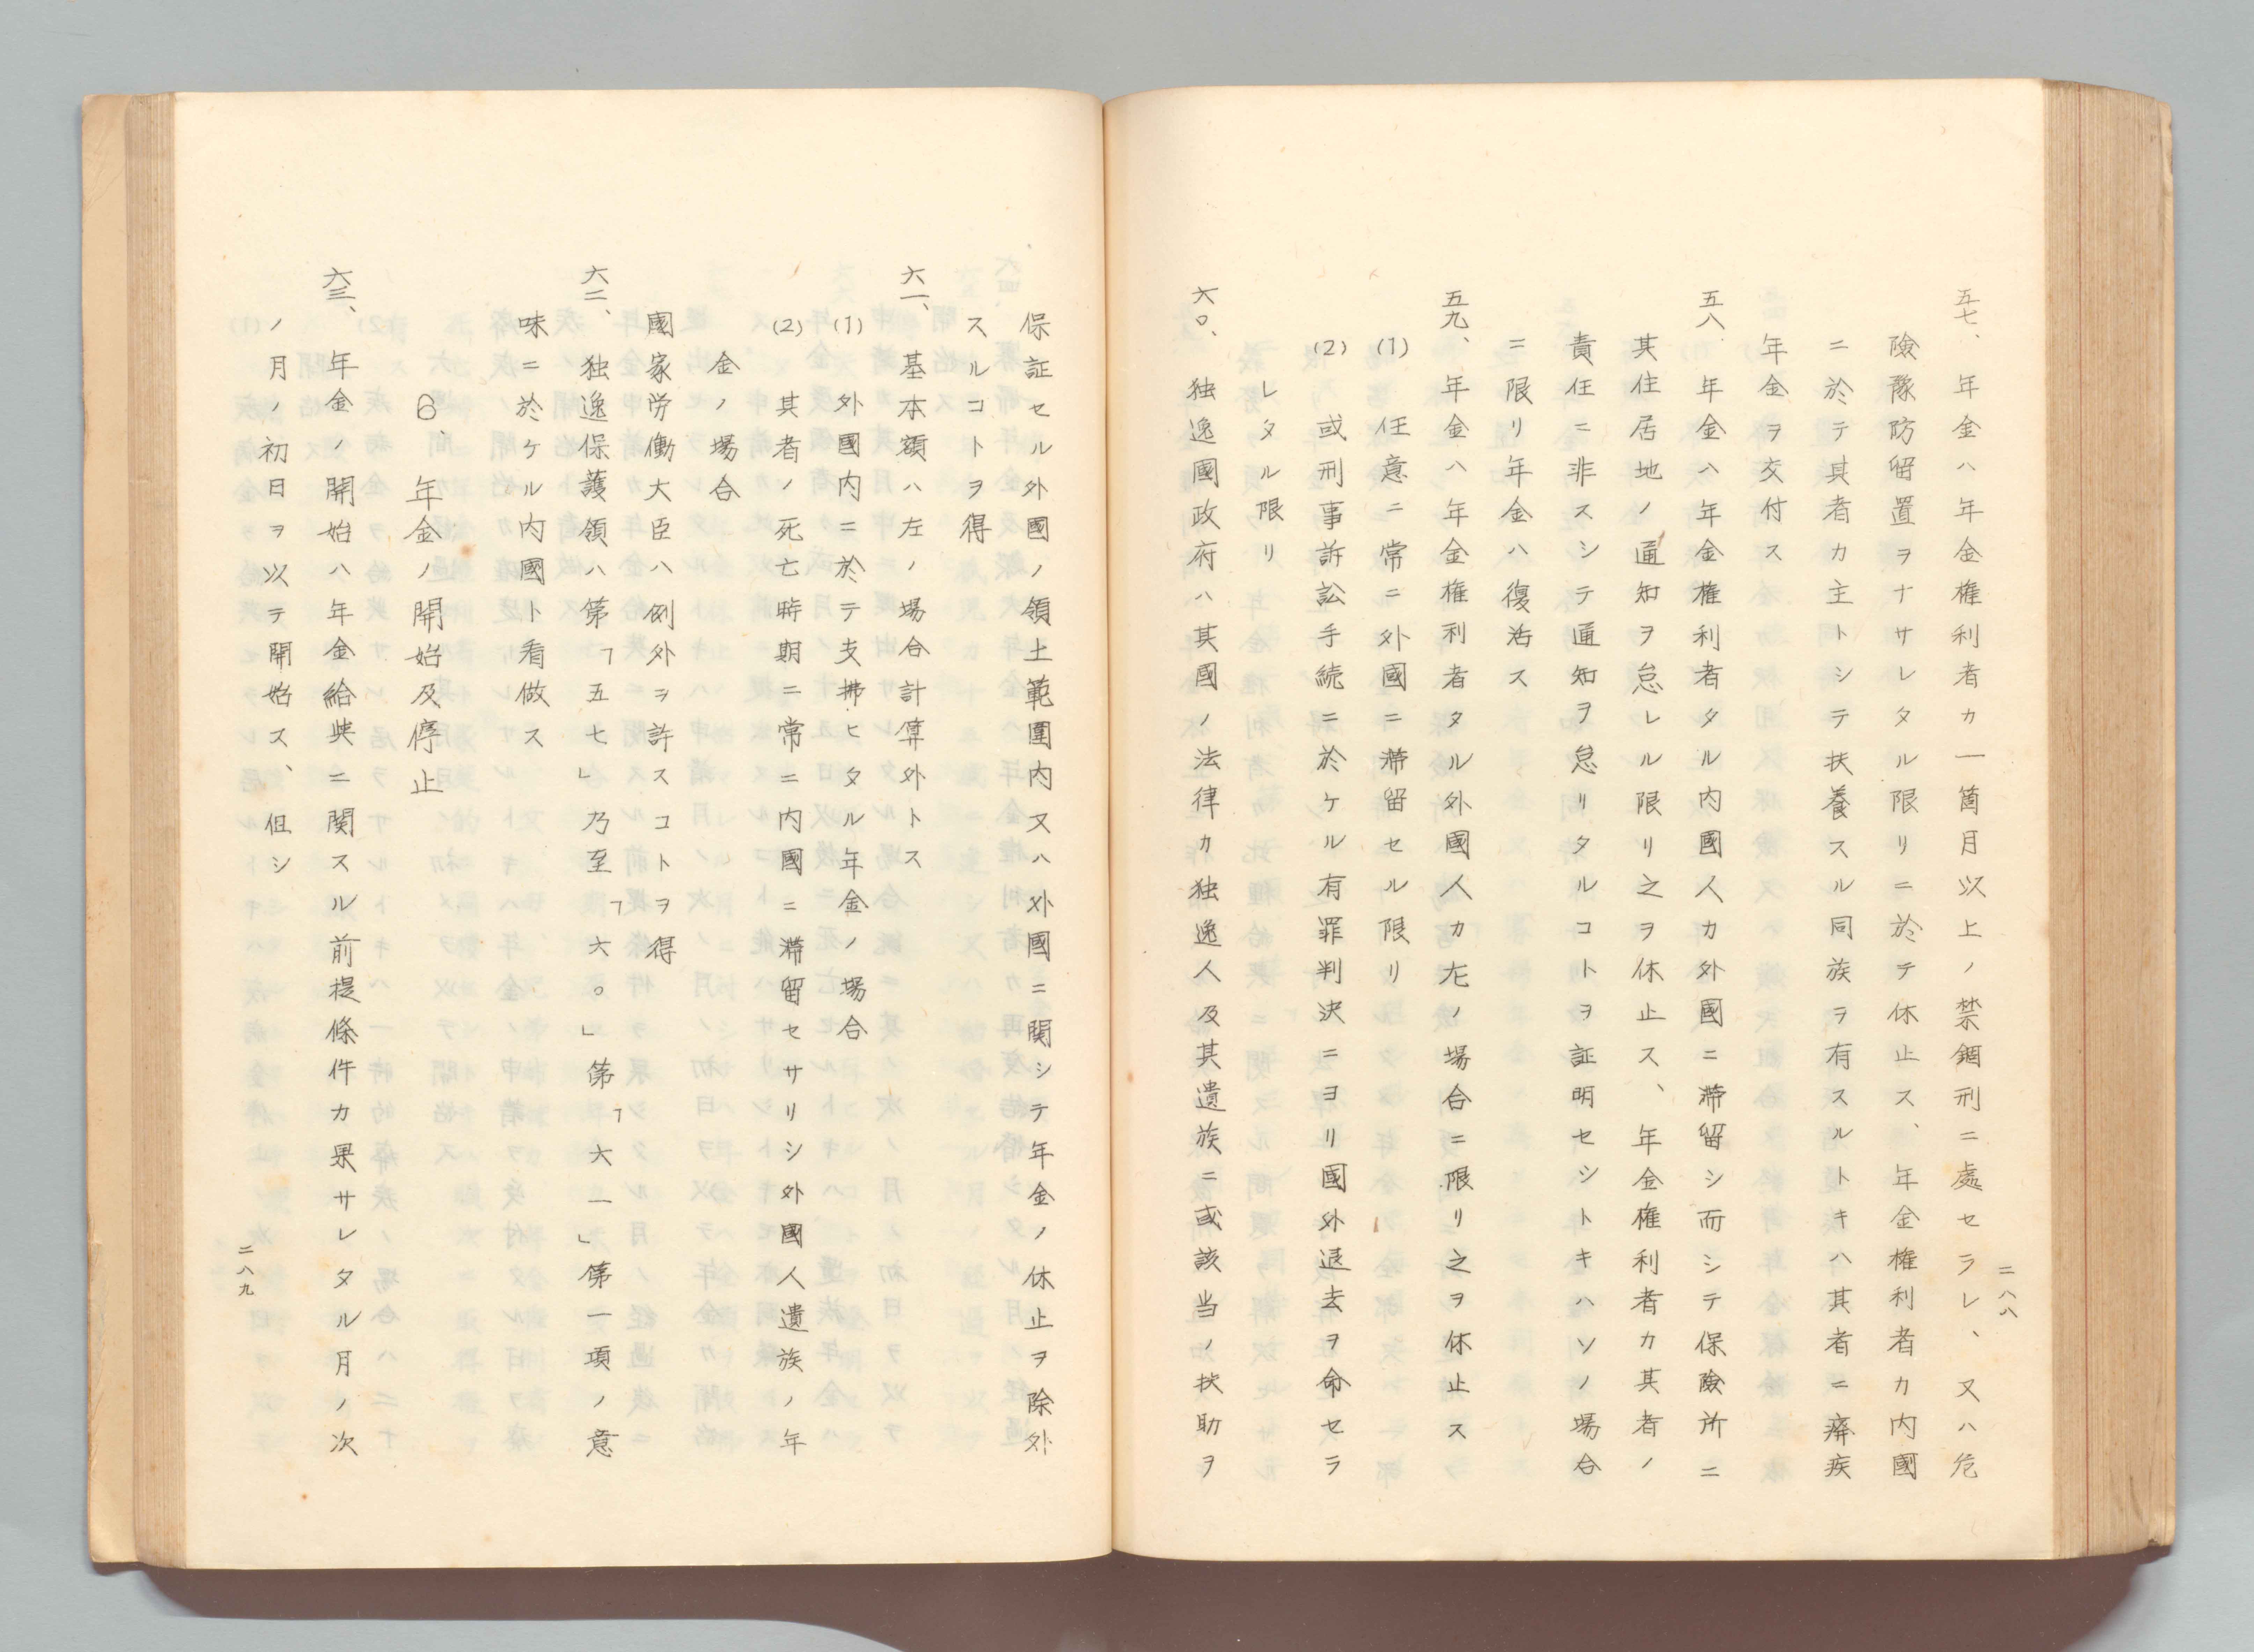 五七、年金ハ年金権利者カ一箇月以上ノ禁錮刑ニ處セラレ、又ハ危
険豫防留置ヲナサレタル限リニ於テ休止ス、年金権利者カ内國
ニ於テ其者カ主トシテ扶養スル同族ヲ有スルトキハ其者ニ癈疾
年金ヲ交付ス
五八、年金ハ年金権利者タル内國人カ外國ニ滞留シ而シテ保険所ニ
其住居地ノ通知ヲ怠レル限リ之ヲ休止ス、年金権利者カ其者ノ
責任ニ非スシテ通知ヲ怠リタルコトヲ証明セシトキハソノ場合
ニ限リ年金ハ復活ス
五九、年金ハ年金権利者タル外國人カ左ノ場合ニ限リ之ヲ休止ス
(1) 任意ニ常ニ外國ニ滞留セル限リ
(2) 或刑事訴訟手続ニ於ケル有罪判决ニヨリ國外退去ヲ命セラ
レタル限リ
六〇、独逸國政府ハ其國ノ法律カ独逸人及其遺族ニ或該当ノ扶助ヲ
二八八
保証セル外國ノ領土範圍内又ハ外國ニ関シテ年金ノ休止ヲ除外
スルコトヲ得
六一、基本額ハ左ノ場合計算外トス
(1) 外國内ニ於テ支拂ヒタル年金ノ場合
(2) 其者ノ死亡時期ニ常ニ内國ニ滞留セサリシ外國人遺族ノ年
金ノ場合
國家労働大臣ハ例外ヲ許スコトヲ得
六二、独逸保護領ハ第「五七」乃至「六〇」第「六一」第一項ノ意
味ニ於ケル内國ト看做ス
6、年金ノ開始及停止
六三、年金ノ開始ハ年金給與ニ関スル前提條件カ果サレタル月ノ次
ノ月ノ初日ヲ以テ開始ス、但シ
二八九